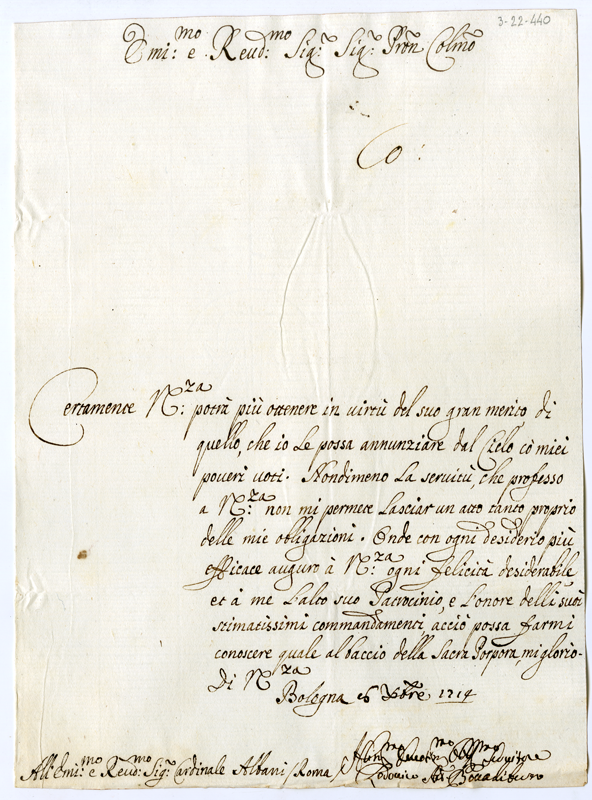 3-22-440
Emi:mo e Reud:mo Sig:r Sig:r Pron Colmo
Certamente N:za potrà più ottenere in virtù del suo gran merito di
quello, che io le possa annunziare dal Cielo cò miei
poueri uoti. Nondimeno la seruitù, che professo
a N:za non mi permete lasciar un atto tanto proprio
delle mie obligazioni. Onde con ogni desiderio più
efficace auguro à N:za ogni felicità desiderabile
et à me l'alto suo Patrocinio, e l'onore delli suoi
stimatissimi commandamenti acciò possa farmi
conoscere quale al baccio della Sacra Porpora mi glorio-
Di N:za
Bologna 6 Xbre 1714
All'Emi:mo e Reud:mo Sig:r Cardinale Albani / Roma /
Lodouico